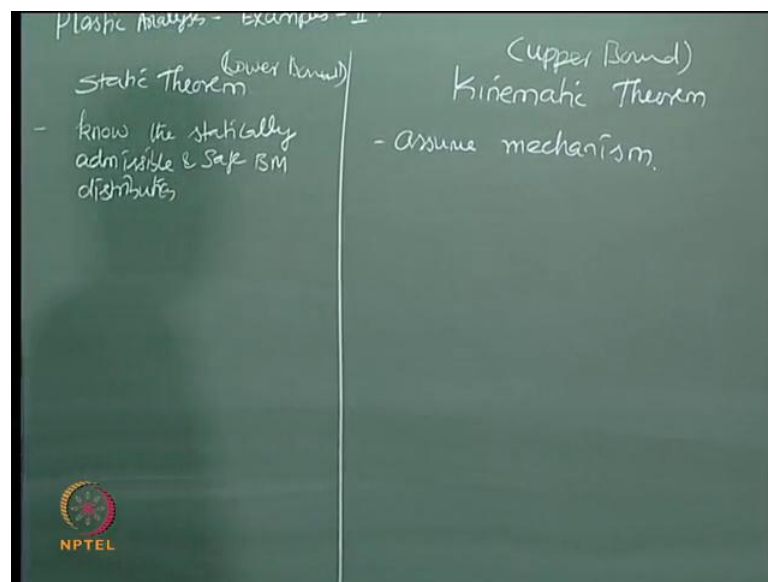 Plastic Analysis - Examples - II
(Lower Bound)
Static Theorem
- know the statically
admissible & Safe BM
distribution
(Upper Bound)
Kinematic Theorem
- assume mechanism.
NPTEL